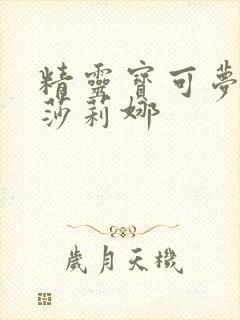 精靈寶可夢
莎莉娜
歲月天機